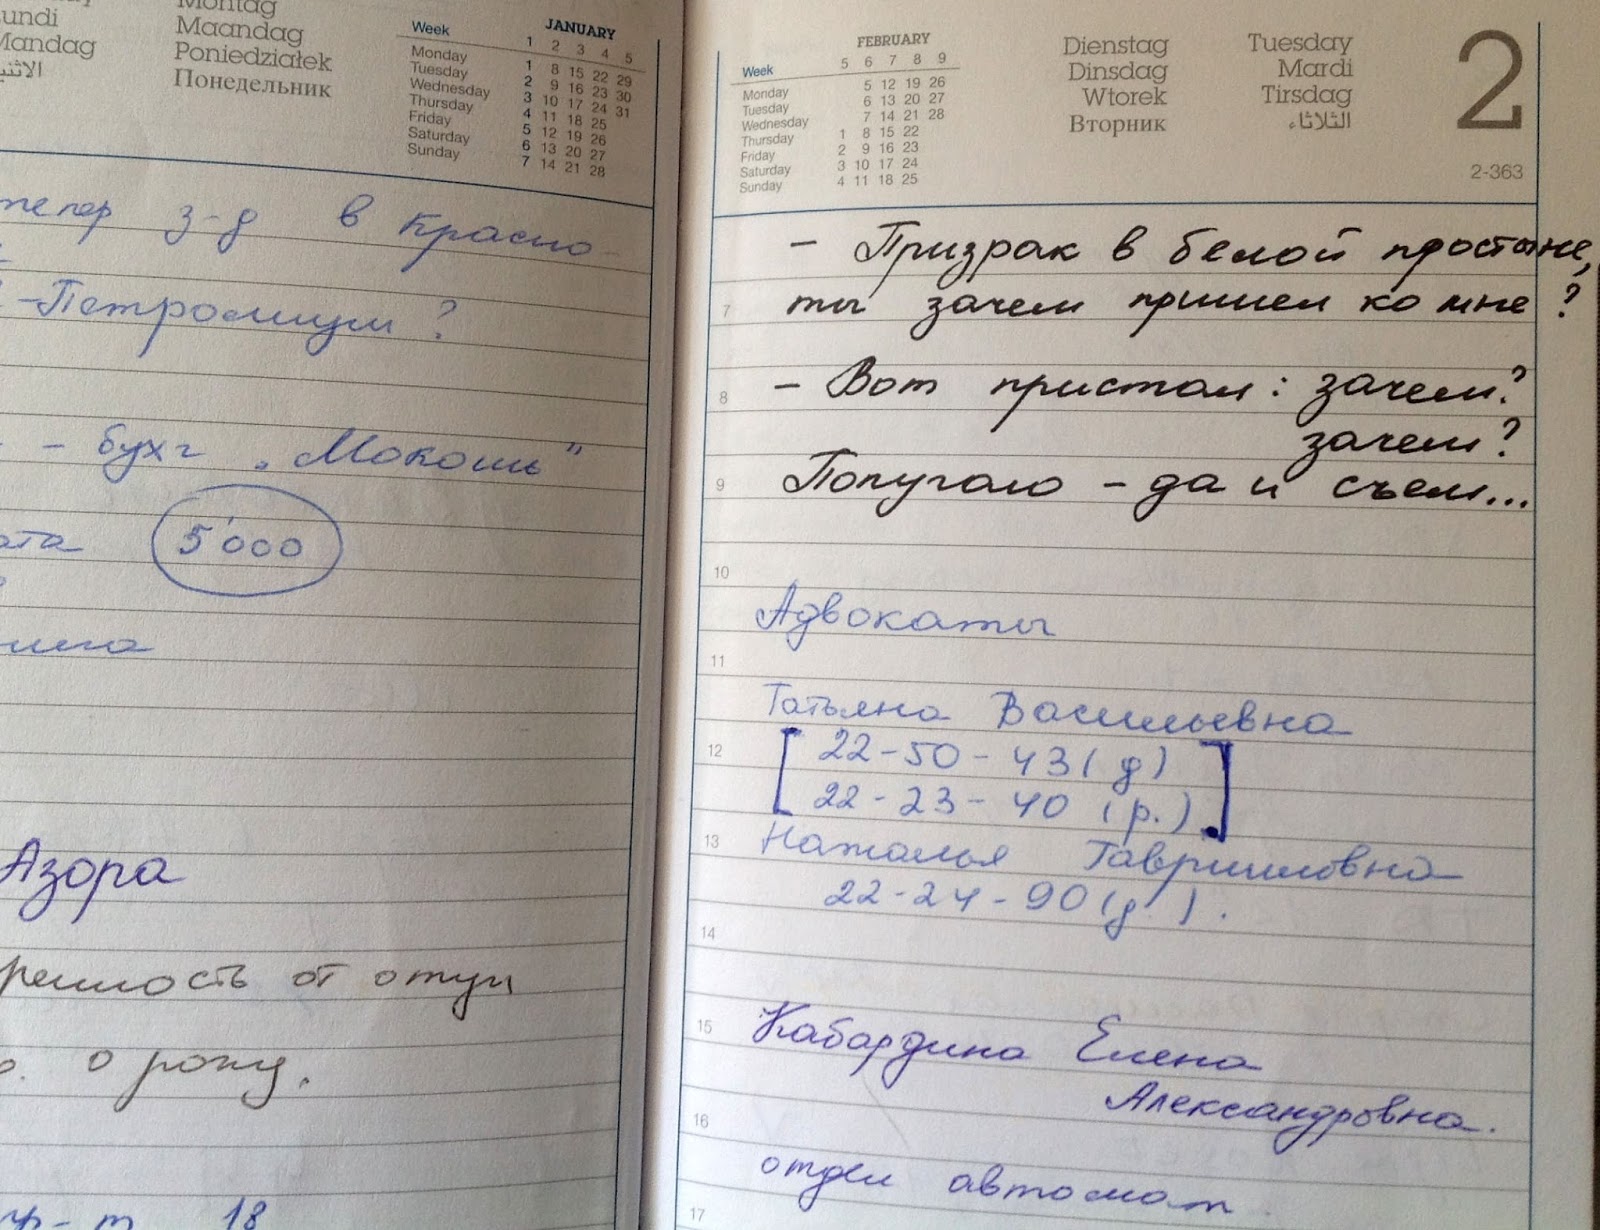 Montag
Lundi Maandag
Mandag Poniedziałek
Понедельник
JANUARY
Week 1 2 3 4 5
Monday 1 8 15 22 29
Tuesday 2 9 16 23 30
Wednesday 3 10 17 24 31
Thursday 4 11 18 25
Friday 5 12 19 26
Saturday 6 13 20 27
Sunday 7 14 21 28
з-д в Красно-
-Петролиум?
- бухг „Мокошь"
5'000
Азора
от отун
о рожу.
18
FEBRUARY
Week 5 6 7 8 9
Monday 5 12 19 26
Tuesday 6 13 20 27
Wednesday 7 14 21 28
Thursday 1 8 15 22
Friday 2 9 16 23
Saturday 3 10 17 24
Sunday 4 11 18 25
Dienstag Tuesday
Dinsdag Mardi
Wtorek Tirsdag
Вторник الثلاثاء
2
2-363
- Призрак в белой простыне,
7 ты зачем пришел ко мне?
8 - Вот пристал: зачем?
зачем?
9 Попугаю - да и съем...
10
Адвокаты
11
Татьяна Васильевна
12 [ 22-50-43 (д)
22-23-40 (р.) ]
13 Наталья Гаврииловна
22-24-90 (д.).
14
15 Кабардина Елена
Александровна.
16
отдел автомат
17